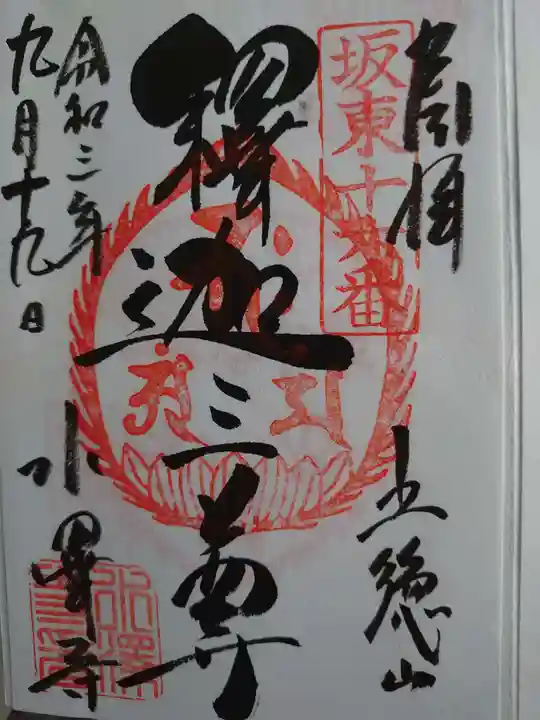 奉拝
坂東十六番
五徳山
釋迦三尊
令和三年
九月十九日
水澤寺